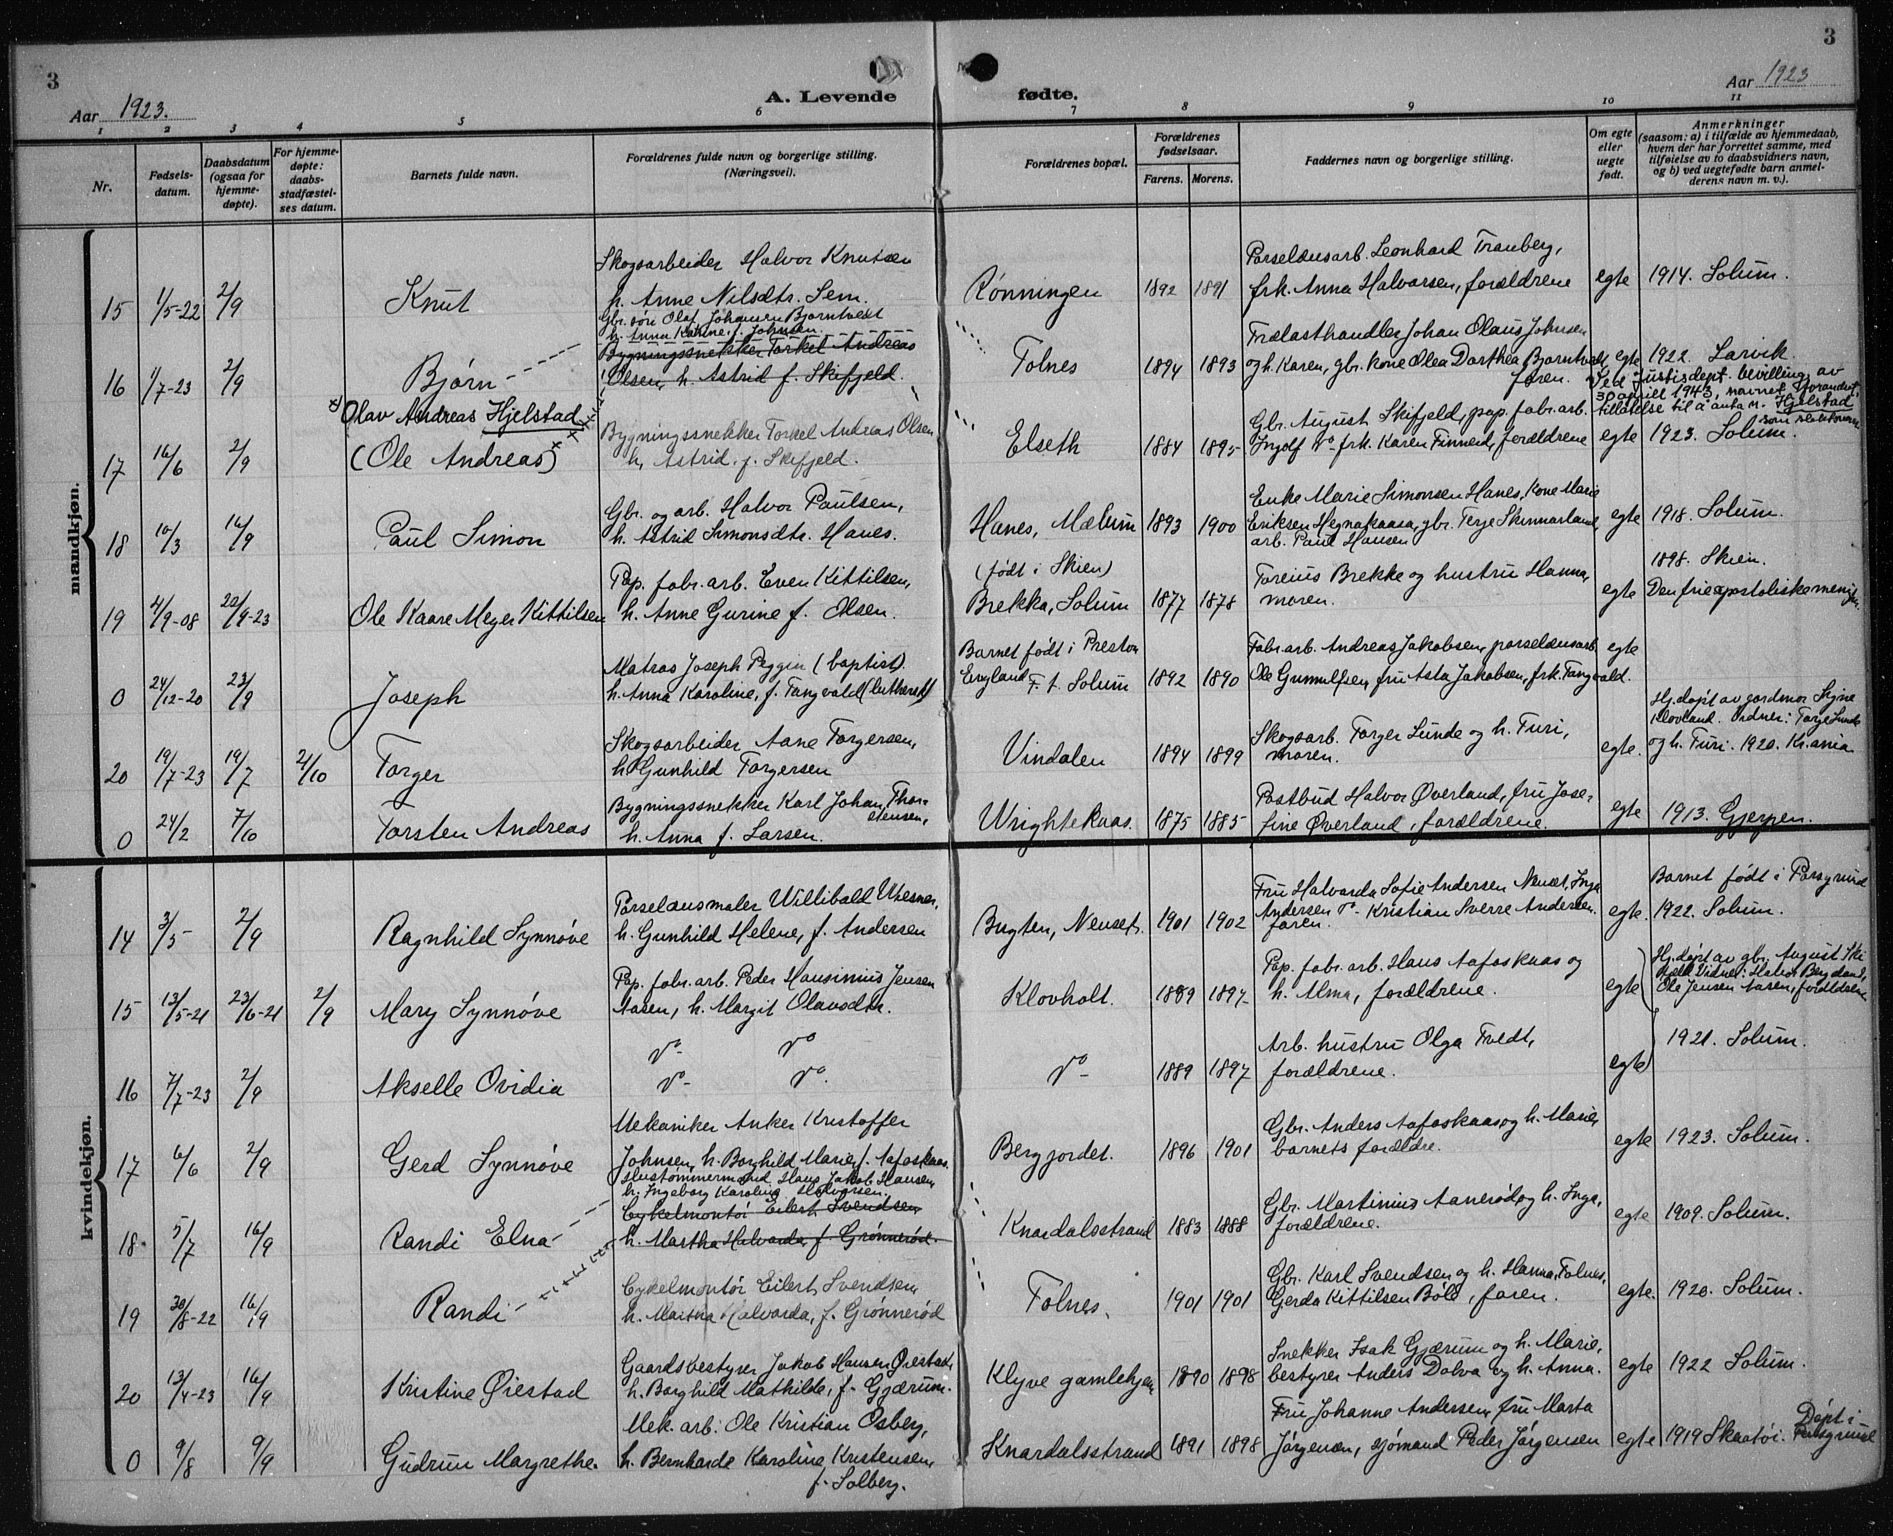 3
Aar 1923.
A. Levende
fødte.
Aar 1923
3
1 2 3 4 5 6 7 8 9 10 11
Nr.
Fødsels-
datum.
Daabsdatum
(ogsaa for
hjemme-
døpte).
For hjemme-
døpte:
daabs-
stadfæstel-
ses datum.
Barnets fulde navn.
Forældrenes fulde navn og borgerlige stilling.
(Næringsvei).
Forældrenes bopæl.
Forældrenes
fødselsaar.
Farens. Morens.
Faddernes navn og borgerlige stilling.
Om egte
eller
uegte
født.
Anmerkninger
(saasom: a) i tilfælde av hjemmedaab,
hvem der har forrettet samme, med
tilføielse av to daabsvidners navn,
og b) ved uegtefødte barn anmel-
derens navn m. v.).
mandkjøn.
15 1/5-22 2/9 Knut
Skogsarbeider Halvor Knutsen
h. Anne Nilsdtr. Sem.
Rønningen 1892 1891
Porselænsarb. Leonhard Tranberg,
frk. Anna Halvorsen, forældrene
egte 1914. Solum.
16 1/7-23 2/9 Bjørn
Gbr. søn Olaf Johansen Bjørntvedt
h. Anna Karine, f. Johnsen.
Bygningssnekker Torkel Andreas
Olsen, h. Astrid f. Skifjeld.
Tolnes 1894 1893
Trælasthandler Johan Olaus Johnsen
og h. Karen, gbr. kone Olea Dorthea Bjørntvedt
faren.
egte 1922. Larvik.
Ved Justisdept. bevilling av
30 april 1943, navnet forandret,
tillatelse til å anta n. Hjelstad
som slektsnavn
17 16/6 2/9
Olav Andreas Hjelstad
(Ole Andreas)
Bygningssnekker Torkel Andreas Olsen
h. Astrid f. Skifjeld.
Elseth 1884 1895
Gbr. August Skifjeld, pap. fabr. arb.
Ingolf do frk. Karen Finneid, forældrene
egte 1923. Solum.
18 10/3 16/9 Paul Simon
Gbr. og arb. Halvor Paulsen,
h. Astrid Simonsdtr. Hanes.
Hanes, Mælum 1893 1900
Enke Marie Simonsen Hanes, Kone Marie
Eriksen Hegnakaasa, gbr. Terje Skinnarland,
arb. Paul Hansen
egte 1918. Solum.
19 4/9-08 22/9-23 Ole Kaare Meyer Kittilsen
Pap. fabr. arb. Even Kittilsen,
h. Anne Gurine f. Olsen.
(født i Skien)
Brekka, Solum 1877 1878
Toreius Brekke og hustru Hanna,
moren.
egte 1898. Skien.
Den frie apostoliske menigh.
0 24/12-20 23/9 Joseph
Matros Joseph Peggin (baptist).
h. Anna Karoline, f. Tangvald (luthersk)
Barnet født i Preston
England F. t. Solum 1892 1890
Fabr. arb. Andreas Jakobsen, porselænsarb.
Ole Gunnulfsen, fru Asta Jakobsen, frk. Tangvald.
egte
20 19/7-23 19/7 21/10 Torger
Skogsarbeider Aane Torgersen,
h. Gunhild Torgersen
Vindalen 1894 1899
Skogsarb. Torger Lunde og h. Turi,
moren.
egte.
Hj. døpt av jordmor Signe
Klovland. Vidner: Torge Lunde
og h. Turi. 1920. Kr.ania
0 24/2 7/10 Torsten Andreas
Bygningssnekker Karl Johan Thor-
stensen,
h. Anna f. Larsen.
Wrightekaas. 1875 1885
Postbud Halvor Øverland, fru Jose-
fine Øverland, forældrene.
egte 1913. Gjerpen.
kvindekjøn.
14 3/5 2/9 Ragnhild Synnøve
Porselænsmaler Willibald Wiesner,
h. Gunhild Helene, f. Andersen
Bugten, Nenset. 1901 1902
Fru Halvarda Sofie Andersen Nenset, Inga
Andersen do- Kristian Sverre Andersen.
faren.
egte.
Barnet født i Porsgrund
1922. Solum.
15 13/5-21 23/6-21 2/9 Mary Synnøve
Pap. fabr. arb. Peder Hansinius Jensen
Aasen, h. Margit Olavsdtr.
Klovholt. 1889 1897
Pap. fabr. arb. Hans Aafoskaas og
h. Alma, forældrene.
egte
Hj. døpt av gbr. August Ski
Vidner: Halvor
Ole Jensen Aasen, forældrene
16 7/7-23 2/9 Akselle Ovidia
do- do
do- do.
do- 1889 1897
Arb. hustru Olga Tvedt,
forældrene.
egte 1921. Solum.
17 6/6 2/9 Gerd Synnøve
Mekaniker Anker Kristoffer
Johnsen, h. Borghild Marie f. Aafoskaas.
Bergjordet. 1896 1901
Gbr. Anders Aafoskaas og h. Marie,
barnets forældre.
egte 1923. Solum.
18. 5/7 16/9 Randi Elna
Hustømmermand Hans Jakob Hansen,
h. Ingeborg Karoline Halvorsen.
Cykelmontør Eilert Svendsen
h. Martha Halvarda, f. Grønnerød.
Knardalsstrand 1883 1888
Gbr. Martinius Aanerød og h. Inga,
forældrene.
egte 1909. Solum.
19 30/8-22 16/9 Randi
Cykelmontør Eilert Svendsen,
h. Martha Halvarda, f. Grønnerød
Tolnes. 1901 1901
Gbr. Karl Svendsen og h. Hanna, Tolnes,
Gerda Kittilsen Bøle, faren.
egte. 1920. Solum.
20 13/4-23 16/9 Kristine Ørestad
Gaardsbestyrer Jakob Hansen Ørestad,
h. Borghild Mathilde, f. Gjærum.
Klyve gamlehjem 1890 1898
Snekker Isak Gjærum og h. Marie,
bestyrer Anders Dolva og h. Anna.
egte 1922 Solum.
0 9/8 9/9 Gudrun Margrethe.
Mek. arb. Ole Kristian Osberg,
h. Bernharde Karoline Kristensen,
f. Solberg.
Knardalsstrand 1891 1898
Fru Johanne Andersen, fru Marta
Jørgensen, sjømand Peder Jørgensen
egte 1919 Skaatøi.
Døpt i
Porsgrund